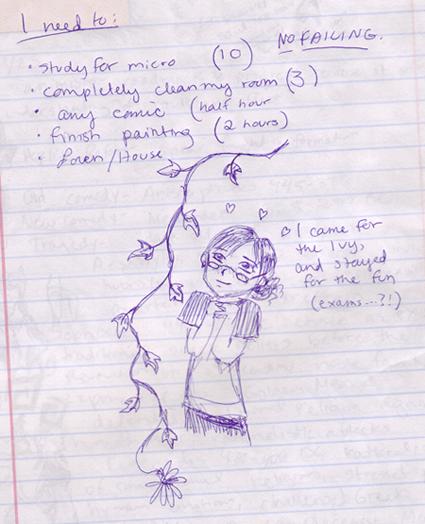 I need to:
NO FAILING.
• study for micro (10)
• completely clean my room (3)
• any comic (half hour
• finish painting (2 hours)
• Loren/House
I came for
the Ivy,
and stayed
for the fun
(exams...?!)